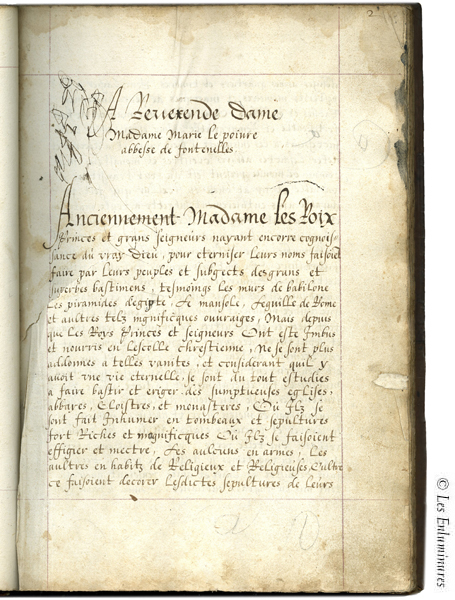 2
A Reverende Dame
Madame Marie le poivre
abbesse de fontenelles
Anciennement Madame les Roix
Princes et grans seigneurs nayant encorre cognois-
sance du vray Dieu, pour eterniser leurs noms faisoiet
faire par leurs peuples et subgects des grans et
superbes bastimens, tesmoings les murs de babilone
les piramides degipte, le mansole, leguille de Rome
et aultres telz mgnificques ouvraiges, Mais depuis
que les Roys Princes et seigneurs Ont este Imbus
et nourris en lescolle chrestienne, Ne se sont plus
addonnes a telles vanites, et considerant quil y
avoit une vie eternelle, se sont du tout estudies
a faire bastir et eriger des sumptueuses eglises,
abbayes, Cloistres, et monasteres, Où Ilz se
sont fait Inhumer en tombeaux et sepultures
fort Riches et magnificques Où Ilz se faisoient
effigier et mectre, les aulciens en armes, Les
aultres en habitz de Religieux et Religieuses, Oultre
ce faisoient decorer lesdictes sepultures de leurs
© Les Enluminures